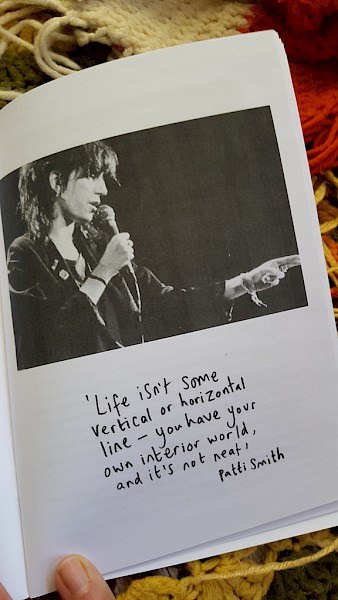 'Life isn't some
vertical or horizontal
line – you have your
own interior world,
and it's not neat'
Patti Smith